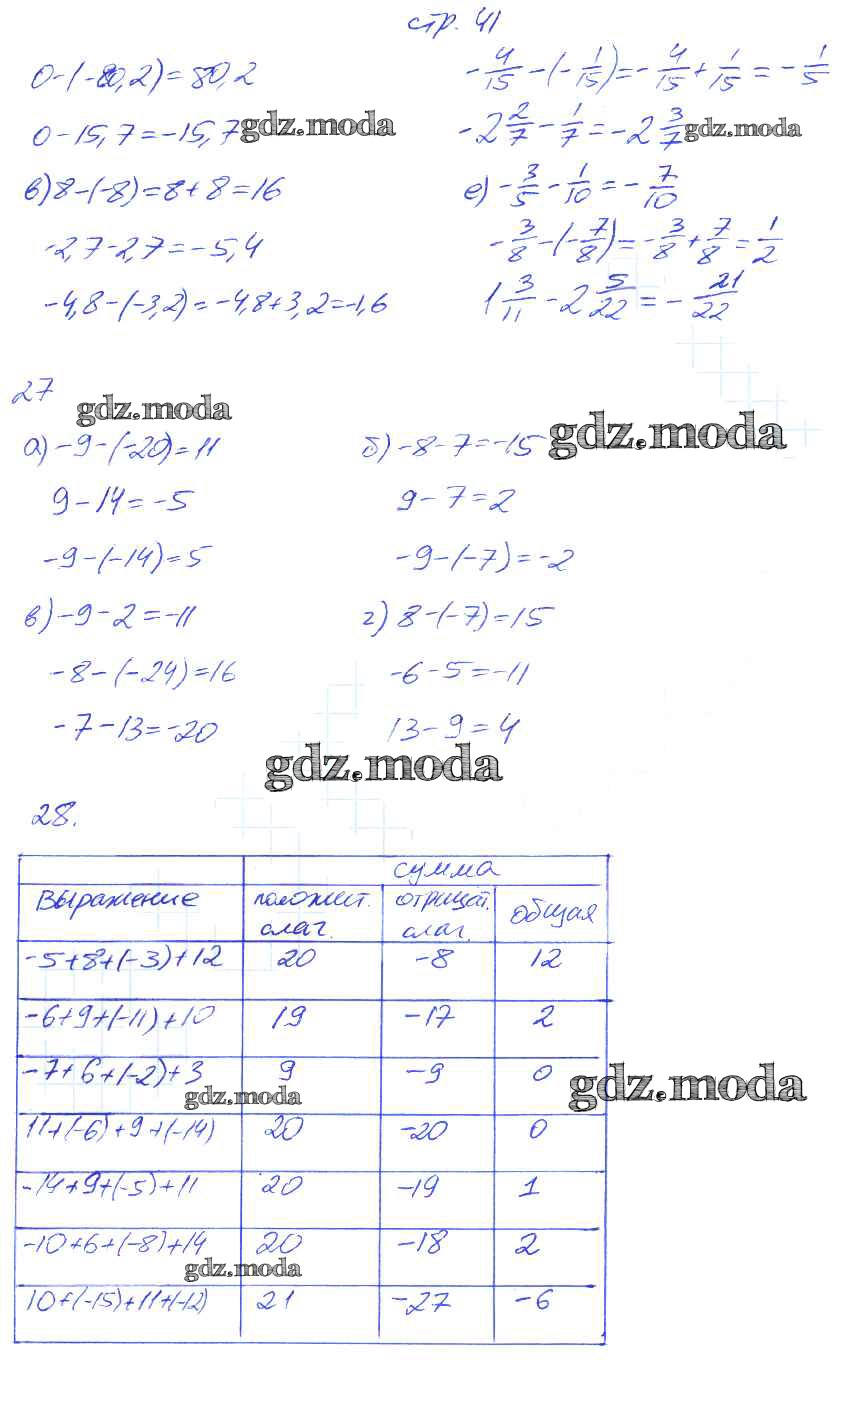 стр. 41
0-(-80,2)=80,2
0-15,7=-15,7
в) 8-(-8)=8+8=16
-2,7-2,7=-5,4
-4,8-(-3,2)=-4,8+3,2=-1,6
-4/15-(-1/15)=-4/15+1/15=-1/5
-2 2/7-1/7=-2 3/7
е) -3/5-1/10=-7/10
-3/8-(-7/8)=-3/8+7/8=1/2
1 3/11-2 5/22=-21/22
gdz.moda
gdz.moda
27
gdz.moda
gdz.moda
а) -9-(-20)=11
9-14=-5
-9-(-14)=5
б) -8-7=-15
9-7=2
-9-(-7)=-2
в) -9-2=-11
-8-(-24)=16
-7-13=-20
г) 8-(-7)=15
-6-5=-11
13-9=4
gdz.moda
28.
сумма
Выражение положит. слаг. отрицат. слаг. общая
-5+8+(-3)+12 20 -8 12
-6+9+(-11)+10 19 -17 2
-7+6+(-2)+3 9 -9 0
gdz.moda
gdz.moda
11+(-6)+9+(-14) 20 -20 0
-14+9+(-5)+11 20 -19 1
-10+6+(-8)+14 20 -18 2
gdz.moda
10+(-15)+11+(-12) 21 -27 -6